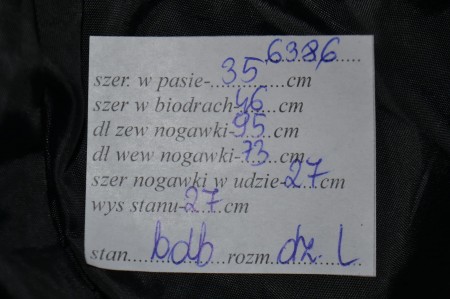 6386
szer. w pasie-35cm
szer w biodrach-46cm
dł zew nogawki-95cm
dł wew nogawki-73cm
szer nogawki w udzie-27cm
wys stanu-27cm
stan....bdb...rozm.dz. L